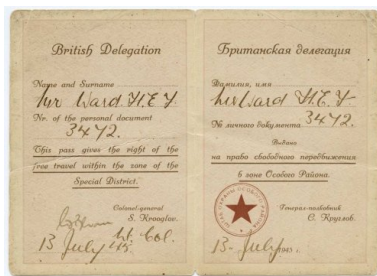 British Delegation
Name and Surname
Ward. H.E.Y.
Nr. of the personal document
3472.
This pass gives the right of the
free travel within the zone of the
Special District.
Colonel-general
S. Krooglov.
Lt. Col.
13 July 45.
Британская делегация
Фамилия, имя
Ward H.E.Y.
№ личного документа 3472.
Выдано
на право свободного передвижения
в зоне Особого Района.
Генерал-полковник
С. Круглов.
13 - July 1945 г.